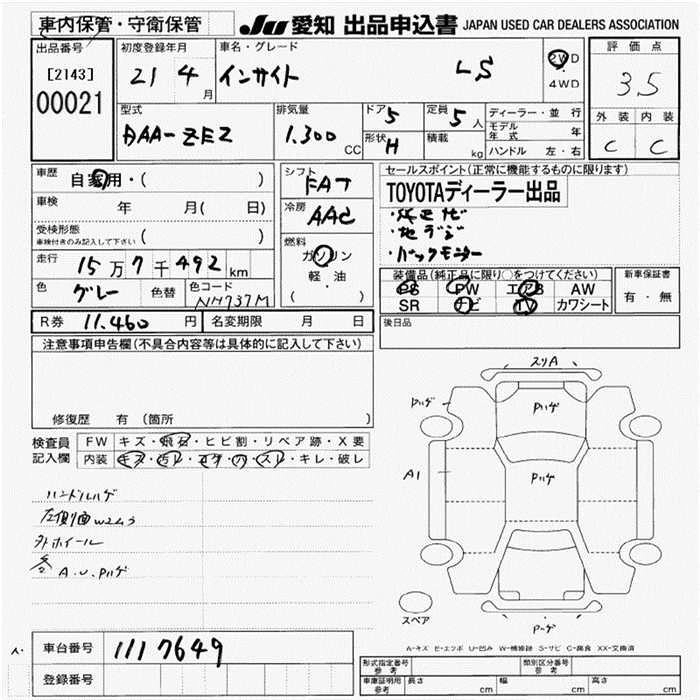 車内保管・守衛保管
JU 愛知 出品申込書 JAPAN USED CAR DEALERS ASSOCIATION
出品番号
[2143]
00021
初度登録年月
21 4 月
車名・グレード
インサイト LS
2WD
4WD
評価点
3.5
外装 内装
C C
型式
DAA-ZE2
排気量
1.300 CC
ドア 5
形状 H
定員 5 人
積載 kg
ディーラー・並行
モデル年式 年
ハンドル 左・右
車歴
自家用・( )
車検
年 月( 日)
受検形態
車検付きのみ記入して下さい ( )
走行
15万7千492km
色
グレー 色替
色コード
NH737M
シフト
FAT
冷房
AAC
燃料
ガソリン
軽・油
( )
セールスポイント(正常に機能するものに限ります)
TOYOTAディーラー出品
・純正ナビ
・地デジ
・バックモニター
装備品(純正品に限り○をつけてください)
PS PW エアB AW
SR ナビ TV カワシート
新車保証書
有・無
R券 11.460 円 名変期限 月 日
後日品
注意事項申告欄(不具合内容等は具体的に記入して下さい)
修復歴 有 (箇所 )
検査員記入欄
FW キズ・飛石・ヒビ割・リペア跡・X要
内装 キズ・汚レ・コゲ・穴・スレ・キレ・破レ
ハンドルハゲ
左側面W2ムラ
外ホイール
A.U.Pハゲ
スリA
Pハゲ
Pハゲ
A1
Pハゲ
スペア
A-キズ E-エクボ U-凹み W-補修跡 S-サビ C-腐食 XX-交換済
車台番号 1117649
登録番号
形式指定番号 参考
類別区分番号 参考
車庫証明用 参考 長さ cm 幅 cm 高さ cm